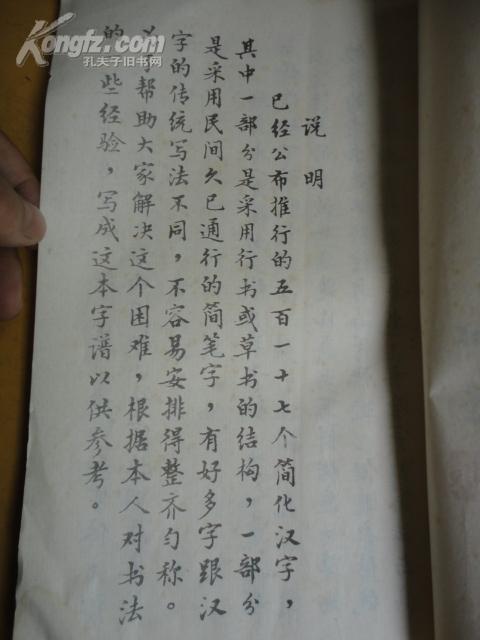 说明
已经公布推行的五百一十七个简化汉字，
其中一部分是采用行书或草书的结构，一部分
是采用民间久已通行的简笔字，有好多字跟汉
字的传统写法不同，不容易安排得整齐匀称。
为了帮助大家解决这个困难，根据本人对书法
的一些经验，写成这本字谱以供参考。
Kongfz.com
孔夫子旧书网